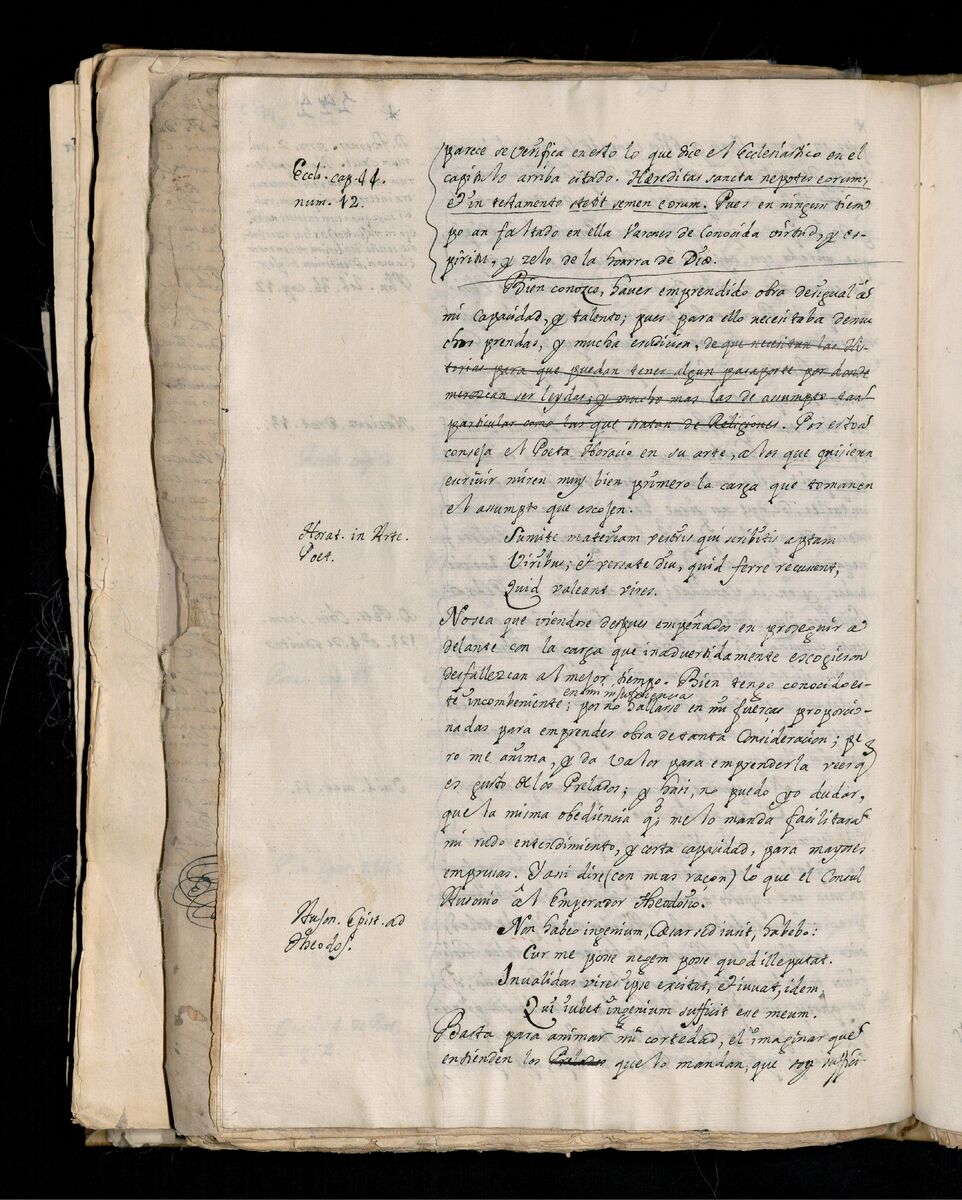 Eccli. cap. 44.
num. 12.
parece se verifica en esto lo que dice el Ecclesiastico en el
capitulo arriba citado. Hæreditas sancta nepotes eorum,
et in testamento stetit semen eorum. Pues en ningun tiem
po an faltado en ella Varones de Conocida virtud, y es-
piritu, y zelo de la honrra de Dios.
Bien conozco, haver emprendido obra desigual a
mi capacidad, y talento; pues para ello necesitaba de mu
chas prendas, y mucha erudicion, de que necesitan las His-
torias para que puedan tener algun pasaporte por donde
merezcan ser leydas; y mucho mas las de asumpto tan
particular como las que tratan de Religiones. Por esto a
conseja el Poeta Horacio en su arte, a los que quisieren
escrivir miren muy bien primero la carga que toman en
el asumpto que escojen.
Horat. in Arte.
Poet.
Sumite materiam vestris qui scribitis aptam
Viribus; et versate diu, quid ferre recusent,
Quid valeant vires.
No sea que viendose despues empeñados en proseguir a
delante con la carga que inadvertidamente escogieron
desfallezcan al mejor tiempo. Bien tengo conocido es-
en mi insuficiencia
te incombeniente; por no hallarse en mis fuerças proporcio-
nadas para emprender obra de tanta Consideracion; pe
ro me anima, y da valor para emprenderla veer q
es gusto de los Prelados; y hasi, no puedo yo dudar,
que la misma obediencia q me lo manda facilitara
mi rudo entendimiento, y corta capacidad, para mayores
empresas. Y asi dire (con mas raçon) lo que el Consul
Ausonio âl Emperador Theodosio.
Auson. Epist. ad
Theodos.
Non habeo ingenium, Cæsar sed iusit, habebo:
Cur me posse negem posse quod ille putat.
Invalidas vires ipse excitat, et iuvat, idem,
Qui iubet ingenium sufficit esse meum.
Basta para animar mi cortedad, el imaginar que
entienden los Prelados que lo mandan, que soy suffici-